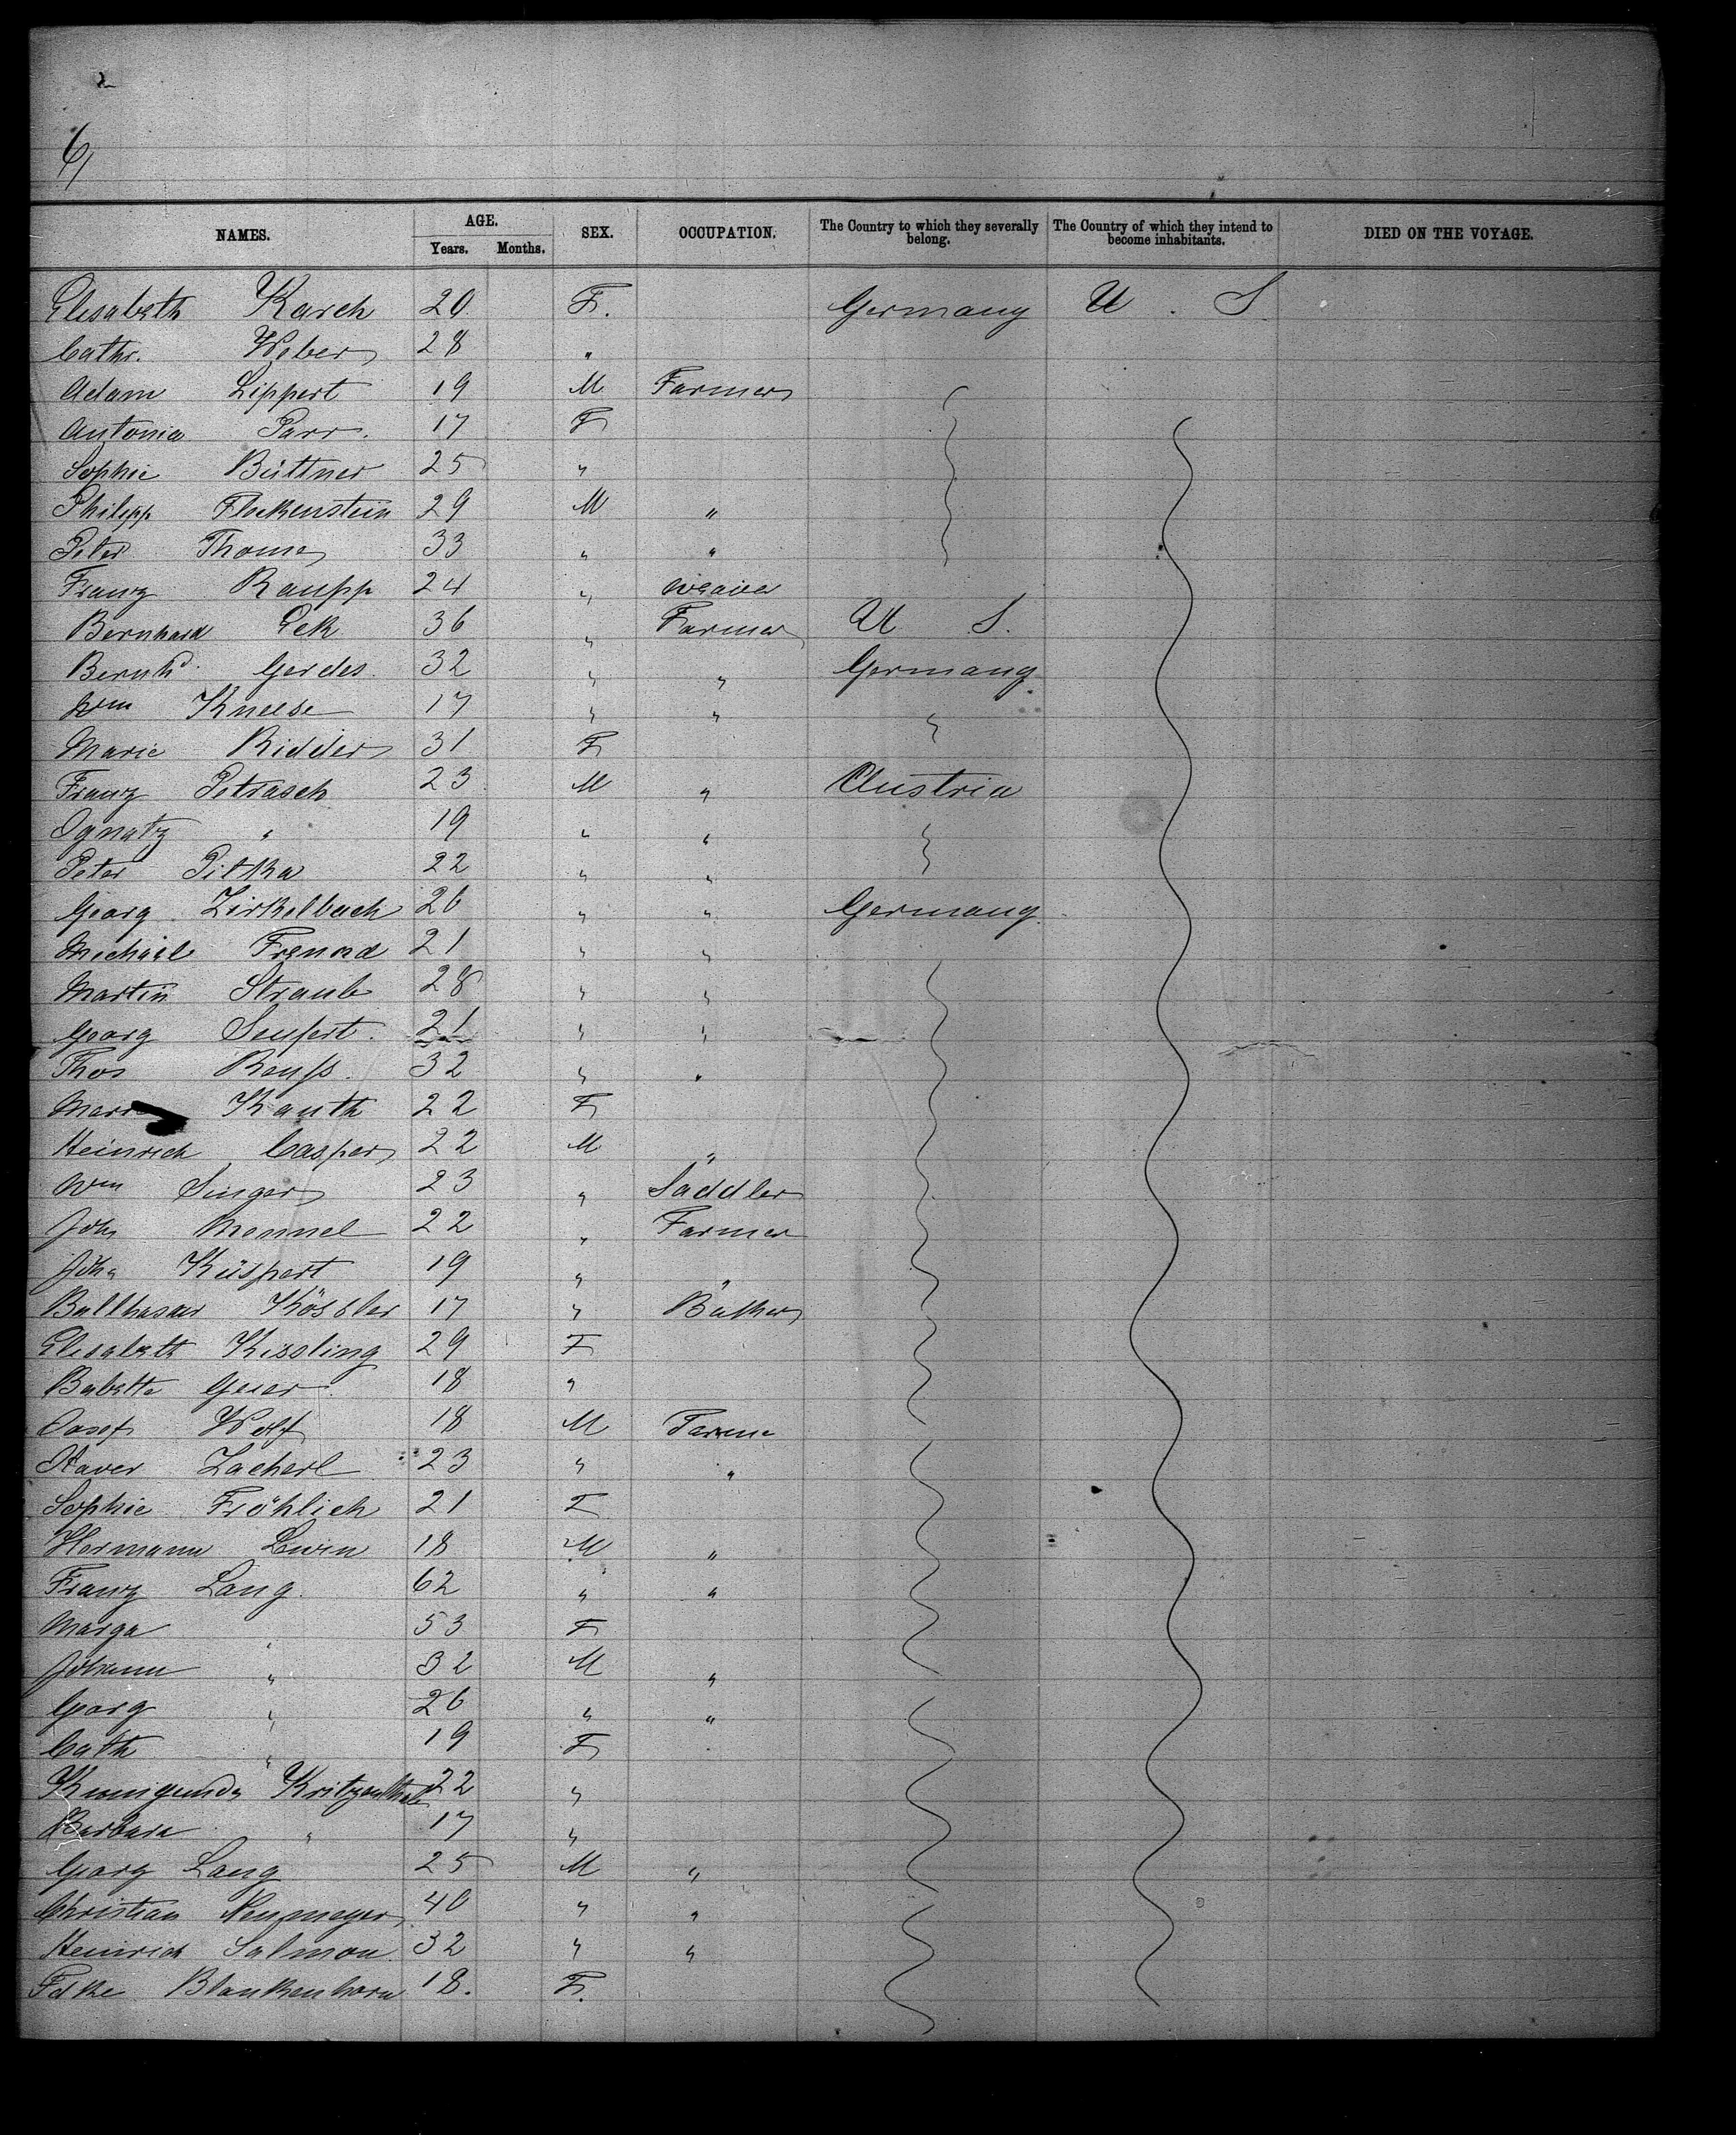 6
NAMES. AGE. Years. Months. SEX. OCCUPATION. The Country to which they severally belong. The Country of which they intend to become inhabitants. DIED ON THE VOYAGE.
Elisabeth Karch 20 F. Germany U. S.
Cathr. Weber 28 "
Adam Lippert 19 M Farmer
Antonia Parr. 17 F
Sophie Büttner 25 "
Philipp Fleckenstein 29 M "
Peter Thome 33 " "
Franz Raupp 24 " weaver
Bernhard Eck 36 " Farmer U S.
Bernhd. Gerdes 32 " " Germany
Wm Kneese 17 " " "
Marie Ridder 31 F
Franz Petrasch 23 M " Austria
Ignatz " 19 " "
Peter Pitka 22 " "
Georg Zirkelbach 26 " " Germany
Michael Freund 21 " "
Martin Straub 28 " "
Georg Seufert. 21 " "
Thos Reuss 32 " "
Marie Kauth 22 F
Heinrich Casper 22 M "
Wm Singer 23 " Saddler
Joh Mennel 22 " Farmer
Joh Küspert 19 " "
Balthasar Kössler 17 " Baker
Elisabeth Kissling 29 F
Babette Geier 18 "
Josef Wolf 18 M Farme
Xaver Zacherl 23 " "
Sophie Fröhlich 21 F
Hermann Lewin 18 M "
Franz Lang. 62 " "
Marga " 53 F
Johann " 32 M "
Georg " 26 " "
Cath " 19 F
Kunigunda 22 "
Barbara " 17 "
Georg Lang 25 M "
Christian Neumeyer 40 " "
Heinrich Salmon 32 " "
Fdke Blankenhorn 18. F.